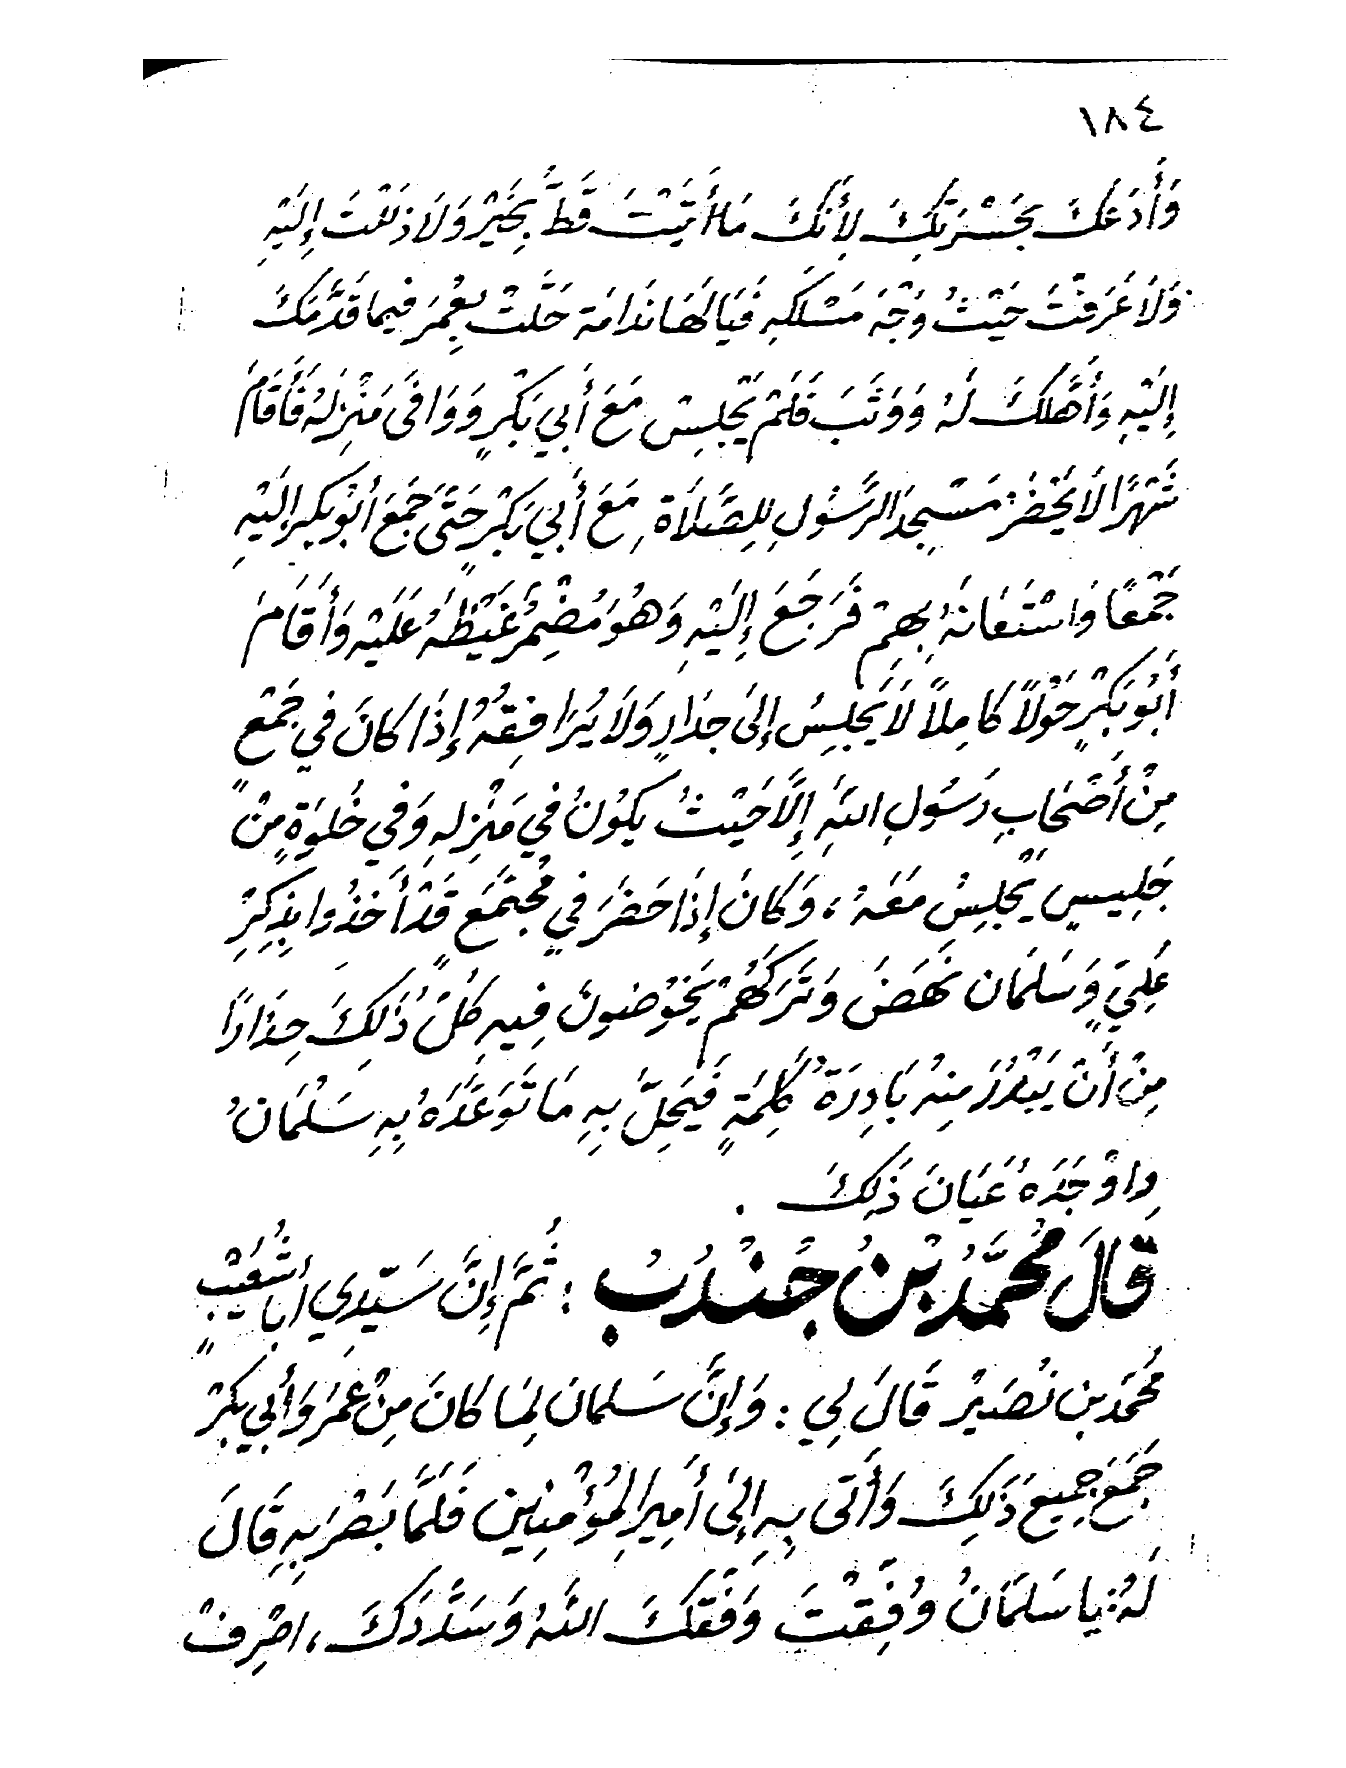 ١٨٤
وَأَدَعَكَ بِحَسْرَتِكَ لِأَنَّكَ مَا أَتَيْتَ قَطُّ بِخَيْرٍ وَلَا دَلَلْتَ إِلَيْهِ
وَلَا عَرَفْتَ حَيْثُ وَجْهَ مَسْلَكِهِ فَيَا لَهَا نَدَامَة حَلَّتْ بِعُمَرَ فِيمَا قَدَّمَكَ
إِلَيْهِ وَأَهَّلَكَ لَهُ وَوَثَبَ فَلَمْ يَجْلِسْ مَعَ أَبِي بَكْرٍ وَوَافَى مَنْزِلَهُ فَأَقَامَ
شَهْرًا لَا يَحْضُرُ مَسْجِدَ الرَّسُولِ لِلصَّلَاةِ مَعَ أَبِي بَكْرٍ حَتَّى جَمَعَ أَبُو بَكْرٍ إِلَيْهِ
جَمْعًا وَاسْتَعَانَهُ بِهِمْ فَرَجَعَ إِلَيْهِ وَهُوَ مُضْمِرٌ غَيْظَهُ عَلَيْهِ وَأَقَامَ
أَبُو بَكْرٍ حَوْلًا كَامِلًا لَا يَجْلِسُ إِلَى جِدَارٍ وَلَا يُرَافِقُهُ إِذَا كَانَ فِي جَمْعٍ
مِنْ أَصْحَابِ رَسُولِ اللَّهِ إِلَّا حَيْثُ يَكُونُ فِي مَنْزِلِهِ وَفِي خَلْوَةٍ مِنْ
جَلِيسٍ يَجْلِسُ مَعَهُ ، وَكَانَ إِذَا حَضَرَ فِي مُجْتَمَعٍ قَدْ أَخَذُوا بِذِكْرِ
عَلِيٍّ وَسَلمَان نَهَضَ وَتَرَكَهُمْ يَخُوْضُونَ فِيهِ كُلُّ ذَلِكَ حِذَارًا
مِنْ أَنْ يَبْدُرَ مِنْهُ بَادِرَةُ كَلِمَةٍ فَيَحِلَّ بِهِ مَا تَوَعَّدَهُ بِهِ سَلْمَانُ
وَاوْجَدَهُ عَيَانَ ذَلِكَ .
قَالَ مُحَمَّدُ بْنُ جُنْدُبْ : ثُمَّ إِنَّ سَيِّدِي أَبَا شُعَيْبٍ
مُحَمَّد بن نُصَيْرْ قَالَ لِي : وَإِنَّ سَلمَانَ لِمَا كَانَ مِنْ عُمَرَ وَأَبِي بَكْرٍ
جَمَعَ جَمِيعَ ذَلِكَ وَأَتَى بِهِ إِلَى أَمِيرِ الْمُؤْمِنِين فَلَمَّا بَصُرَ بِهِ قَالَ
لَهُ: يَا سَلمَانُ وُفِّقْتَ وَفَّقَكَ اللَّهُ وَسَدَّدَكَ ، اصْرِفْ